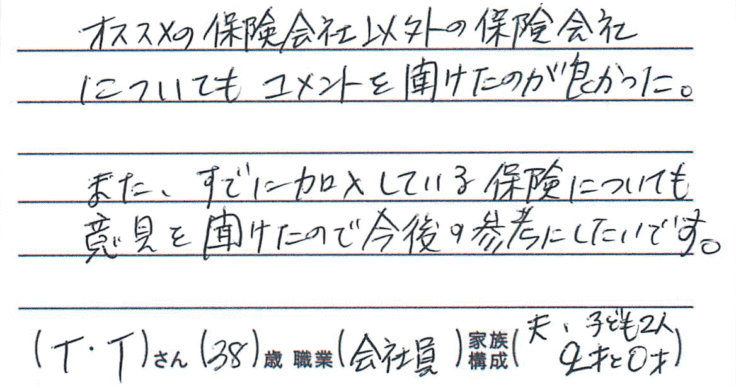 オススメの保険会社以外の保険会社
についてもコメントを聞けたのが良かった。
また、すでに加入している保険についても
意見を聞けたので今後の参考にしたいです。
(T・T)さん(38)歳 職業(会社員)家族構成(夫、子ども2人 2才と0才)